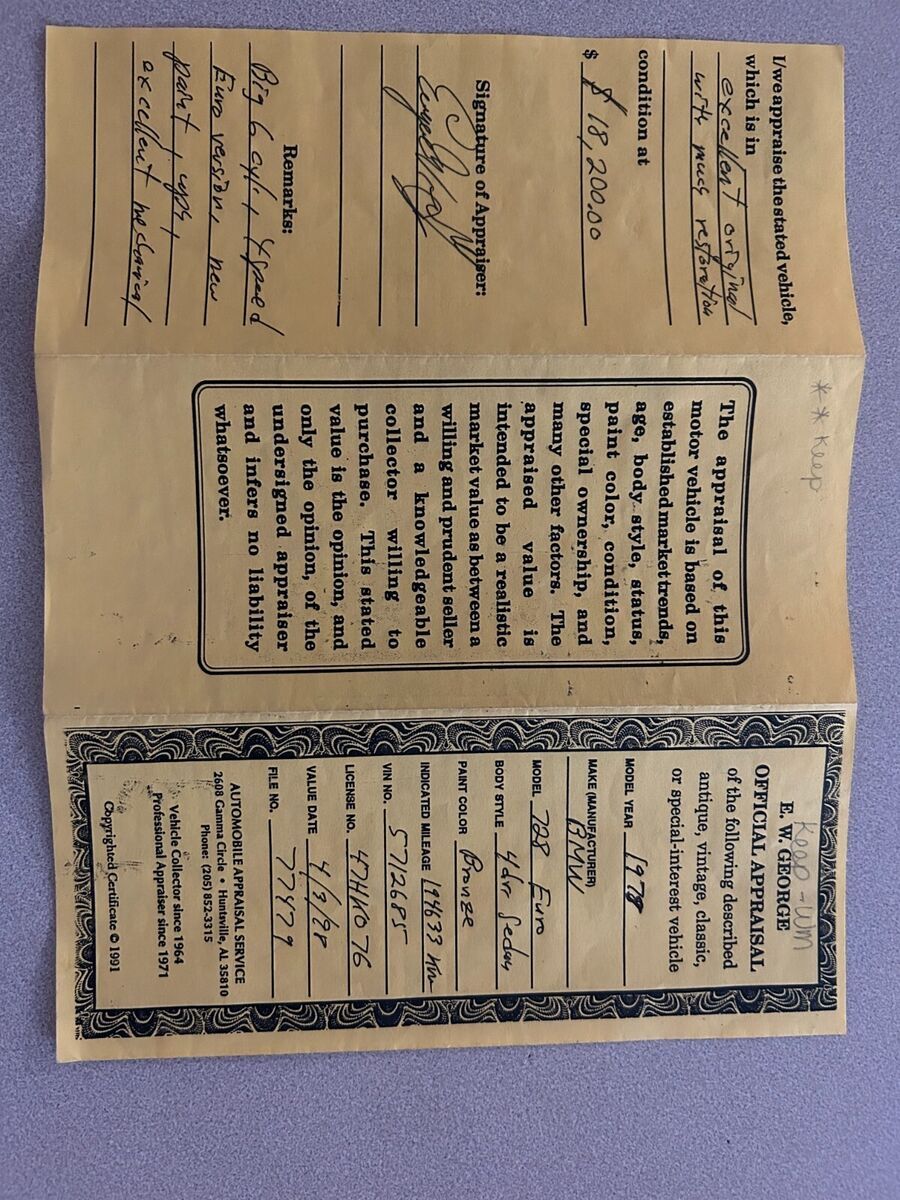 I/we appraise the stated vehicle,
which is in
excellent original
with much restoration
condition at
$ $ 18,200.00
Signature of Appraiser:
Remarks:
Big 6 cyl + 4 speed
Euro version, new
paint + uph +
excellent mechanical
* * Keep
The appraisal of this
motor vehicle is based on
established market trends,
age, body style, status,
paint color, condition,
special ownership, and
many other factors. The
appraised value is
intended to be a realistic
market value as between a
willing and prudent seller
and a knowledgeable
collector willing to
purchase. This stated
value is the opinion, and
only the opinion, of the
undersigned appraiser
and infers no liability
whatsoever.
Keep - WM
E. W. GEORGE
OFFICIAL APPRAISAL
of the following described
antique, vintage, classic,
or special-interest vehicle
MODEL YEAR 1978
MAKE (MANUFACTURER)
BMW
MODEL 728 Euro
BODY STYLE 4 dr Sedan
PAINT COLOR Bronze
INDICATED MILEAGE 194633 km
VIN NO. 5712685
LICENSE NO. 47HK076
VALUE DATE 4/3/98
FILE NO. 77479
AUTOMOBILE APPRAISAL SERVICE
2608 Gamma Circle • Huntsville, AL 35810
Phone: (205) 852-3315
Vehicle Collector since 1964
Professional Appraiser since 1971
Copyrighted Certificate © 1991